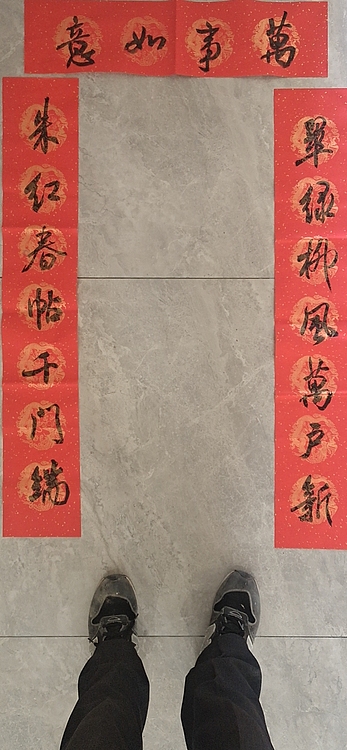 萬事如意
翠绿柳風萬户新
朱红春帖千门瑞